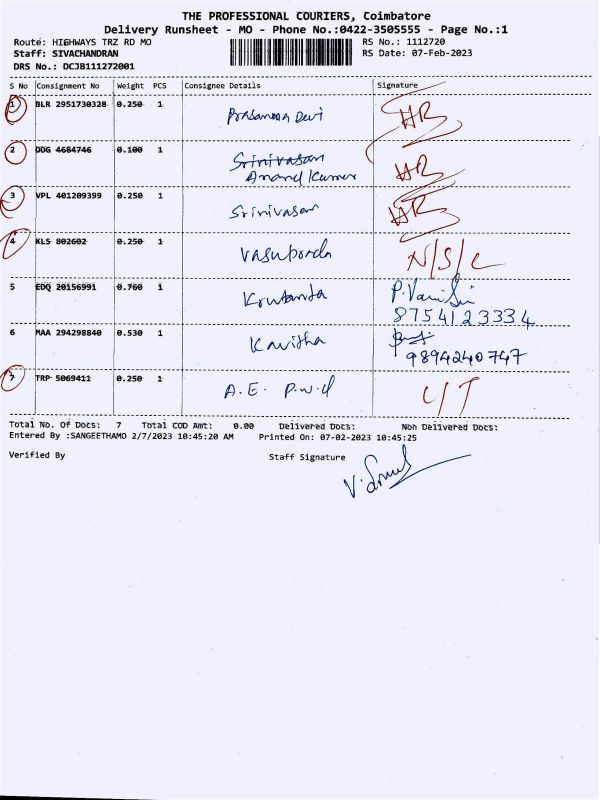 THE PROFESSIONAL COURIERS, Coimbatore
Delivery Runsheet - MO - Phone No.:0422-3505555 - Page No.:1
Route: HIGHWAYS TRZ RD MO
RS No.: 1112720
Staff: SIVACHANDRAN
RS Date: 07-Feb-2023
DRS No.: DCJB111272001
S No Consignment No Weight PCS Consignee Details Signature
1 BLR 2951730328 0.250 1 Devi HB
2 DDG 4684746 0.100 1 Srinivasan
Anand Kumar HB
3 VPL 401209399 0.250 1 Srinivasan HB
4 KLS 802602 0.250 1 N/S/C
5 EDQ 20156991 0.760 1
8754123334
6 MAA 294298840 0.530 1 Kavitha
9894240747
7 TRP 5069411 0.250 1 A.E. P.W.D
Total No. Of Docs: 7 Total COD Amt: 0.00 Delivered Docs: Non Delivered Docs:
Entered By :SANGEETHAMO 2/7/2023 10:45:20 AM Printed On: 07-02-2023 10:45:25
Verified By Staff Signature